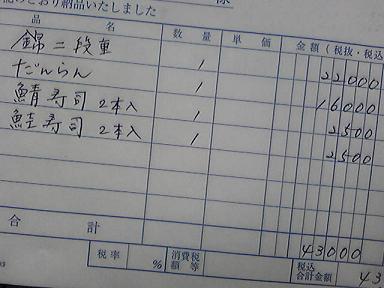 とおり納品いたしました 様
品名 数量 単価 金額(税抜・税込
錦二段重 1 22000
だんらん 1 16000
鯖寿司 2本入 1 2500
鮭寿司 2本入 1 2500
合計 43000
税率 % 消費税額等 税込合計金額 43